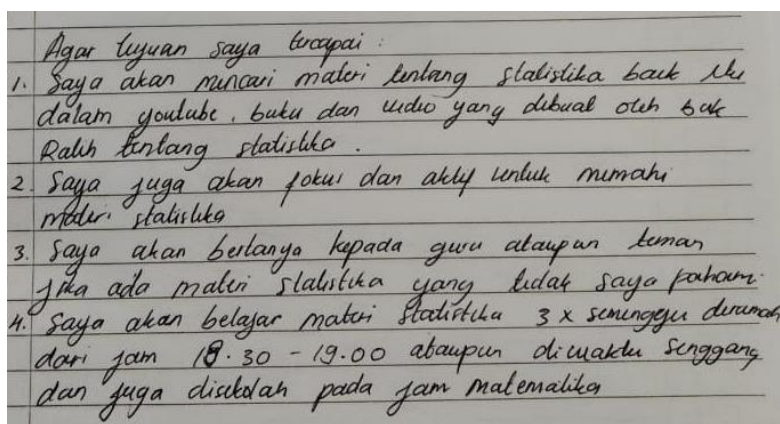 Agar tujuan saya tercapai :
1. Saya akan mencari materi tentang statistika baik itu
dalam youtube, buku dan vidio yang dibuat oleh bak
Ratih tentang statistika.
2. Saya juga akan fokus dan aktif untuk memahi
materi statistika
3. Saya akan bertanya kepada guru ataupun teman
jika ada materi statistika yang tidak saya pahami.
4. Saya akan belajar materi statistika 3 x seminggu dirumah
dari jam 18.30 - 19.00 ataupun diwaktu senggang
dan juga disekolah pada jam matematika